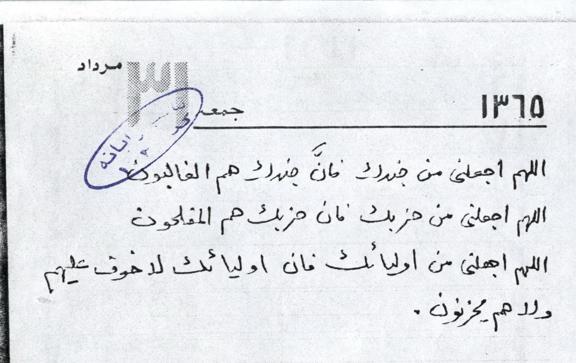 مرداد
۳۱
جمعه
۱۳۶۵
اللهم اجعلنی من جندك فانَّ جندك هم الغالبون
اللهم اجعلنی من حزبك فان حزبك هم المفلحون
اللهم اجعلنی من اولیائك فان اولیائك لاخوف علیهم
ولاهم یحزنون .